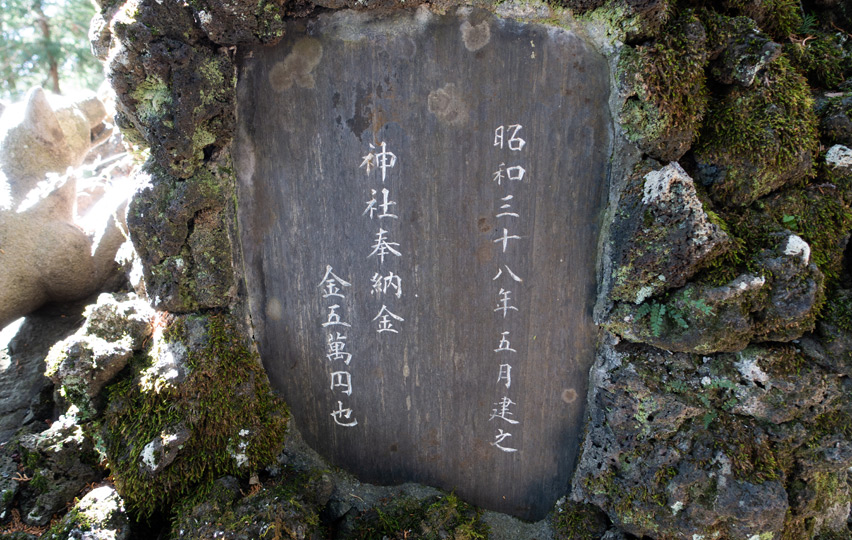 昭和三十八年五月建之
神社奉納金
金五萬円也